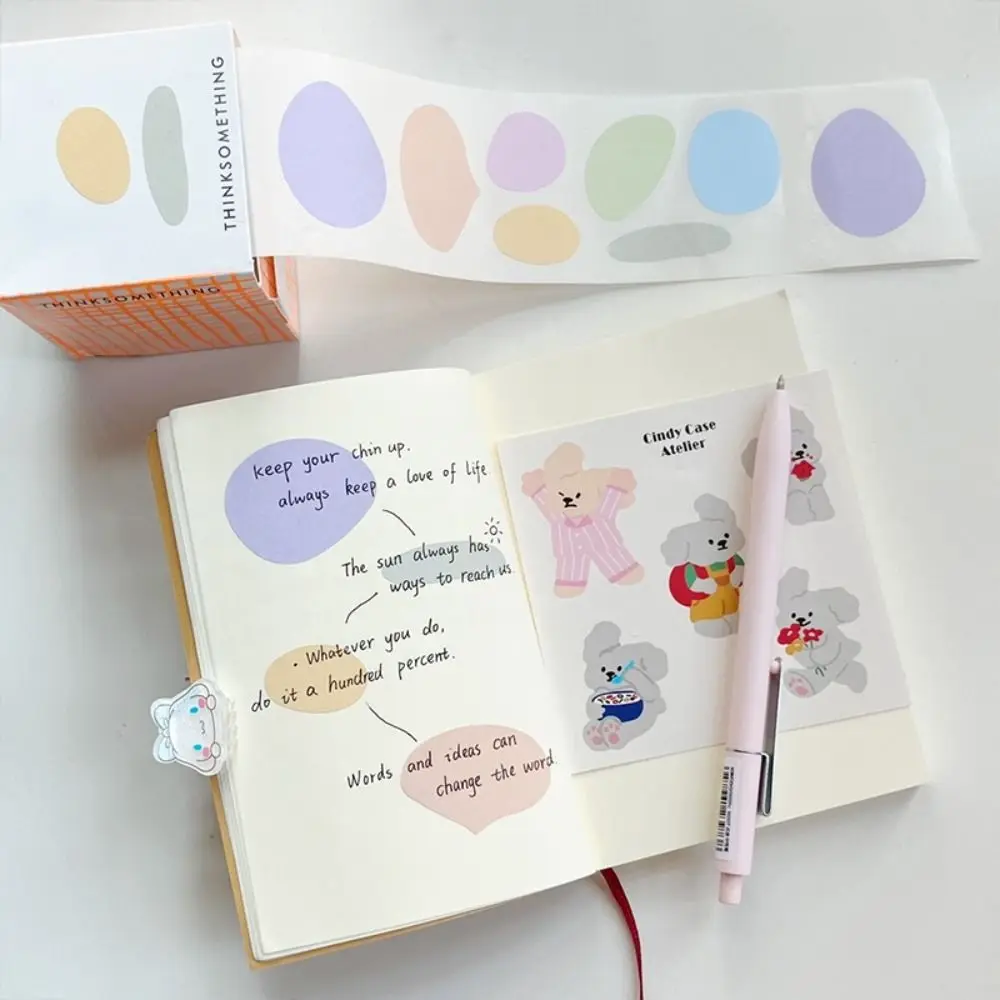 THINKSOMETHING
THINKSOMETHING
keep your chin up.
always keep a love of life.
The sun always has
ways to reach us.
· Whatever you do,
do it a hundred percent.
Words and ideas can
change the word.
Cindy Case
Atelier